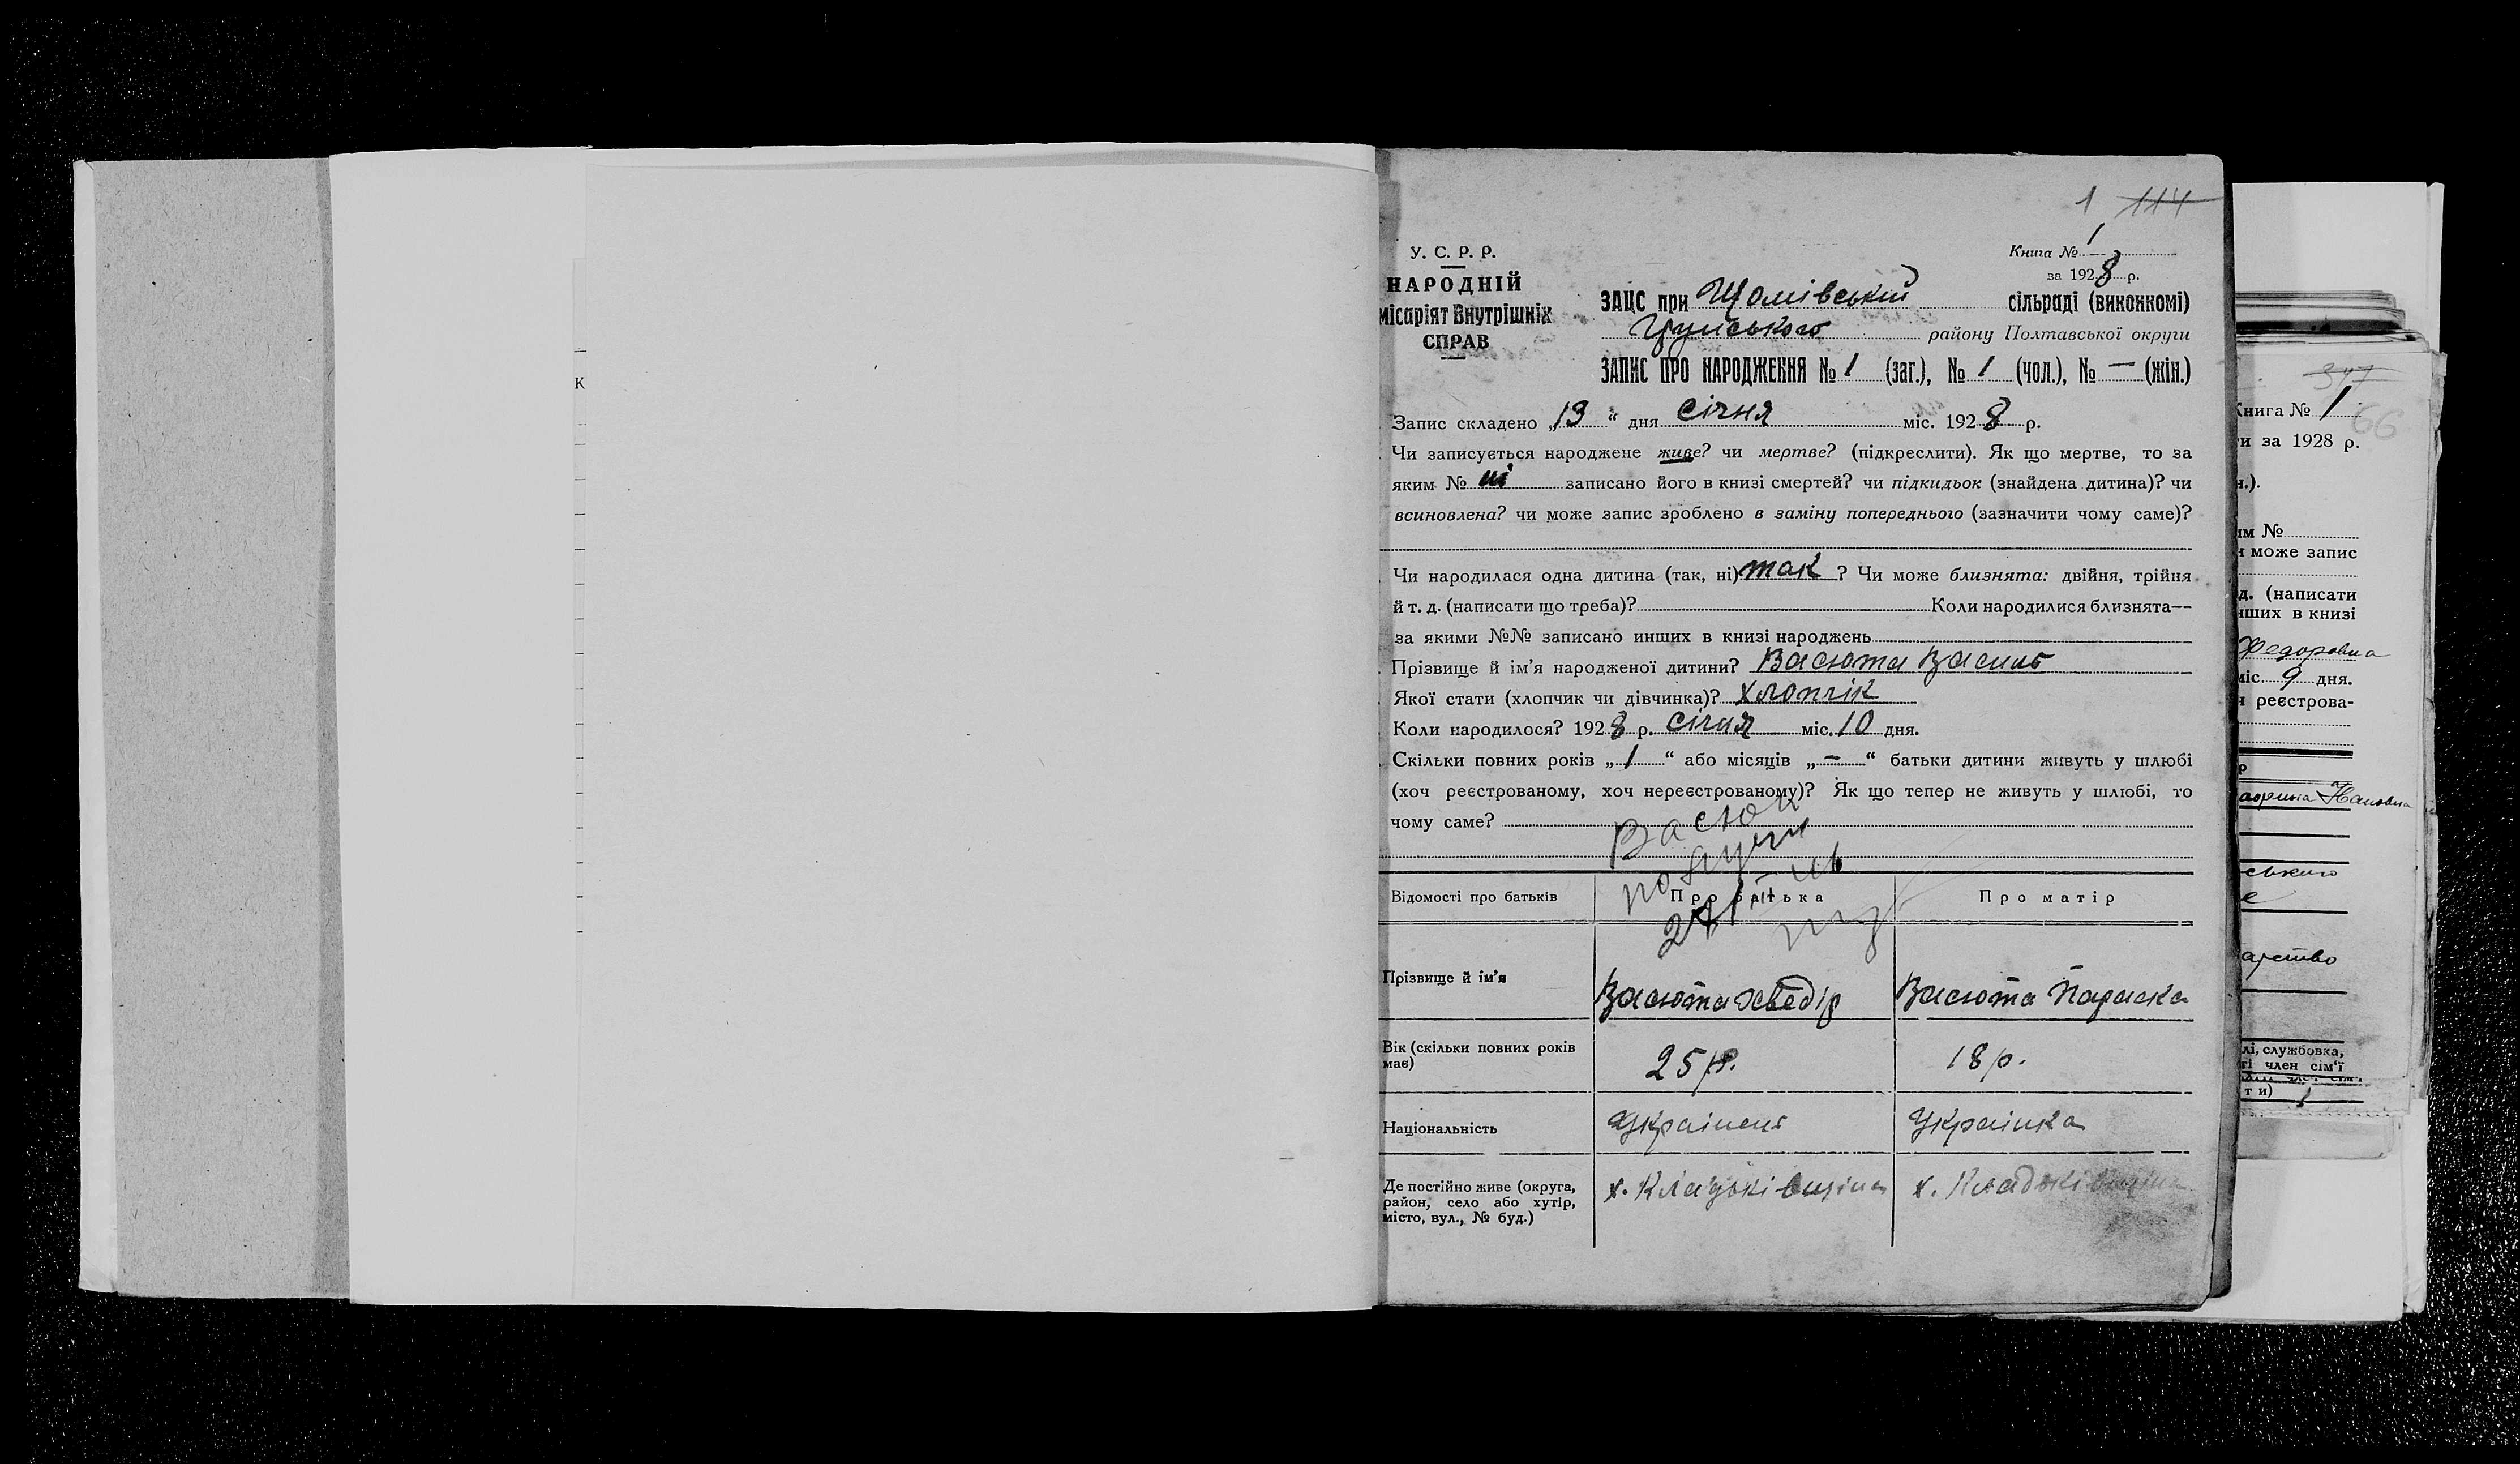 К
1 114
У. С. Р. Р.
НАРОДНІЙ
місаріят Внутрішніх
СПРАВ
Книга № 1
за 1928 р.
ЗАЦС при сільраді (виконкомі)
району Полтавської округи
ЗАПИС ПРО НАРОДЖЕННЯ № 1 (заг.), № 1 (чол.), № — (жін.)
Запис складено „13“ дня січня міс. 1928 р.
Чи записується народжене живе? чи мертве? (підкреслити). Як що мертве, то за
яким № ні записано його в книзі смертей? чи підкидьок (знайдена дитина)? чи
всиновлена? чи може запис зроблено в заміну попереднього (зазначити чому саме)?
Чи народилася одна дитина (так, ні) так ? Чи може близнята: двійня, трійня
й т. д. (написати що треба)? Коли народилися близнята—
за якими №№ записано инших в книзі народжень
Прізвище й ім'я народженої дитини? Васюта Василь
Якої стати (хлопчик чи дівчинка)? хлопчік
Коли народилося? 1928 р. січня міс. 10 дня.
Скільки повних років „1“ або місяців „—“ батьки дитини живуть у шлюбі
(хоч реєстрованому, хоч нереєстрованому)? Як що тепер не живуть у шлюбі, то
чому саме?
Відомості про батьків Про батька Про матір
Прізвище й ім'я Васюта Хведір Васюта Параска
Вік (скільки повних років має) 25 р. 18 р.
Національність Українець Українка
Де постійно живе (округа,
район, село або хутір,
місто, вул., № буд.)
х. х.
347
66
Книга № 1
и за 1928 р.
н.).
им №
и може запис
д. (написати
нших в книзі
Федоровна
міс. 9 дня.
н реєстрова-
р
Ивановна
ського
арство
лі, службовка,
гі член сім'ї
ти)